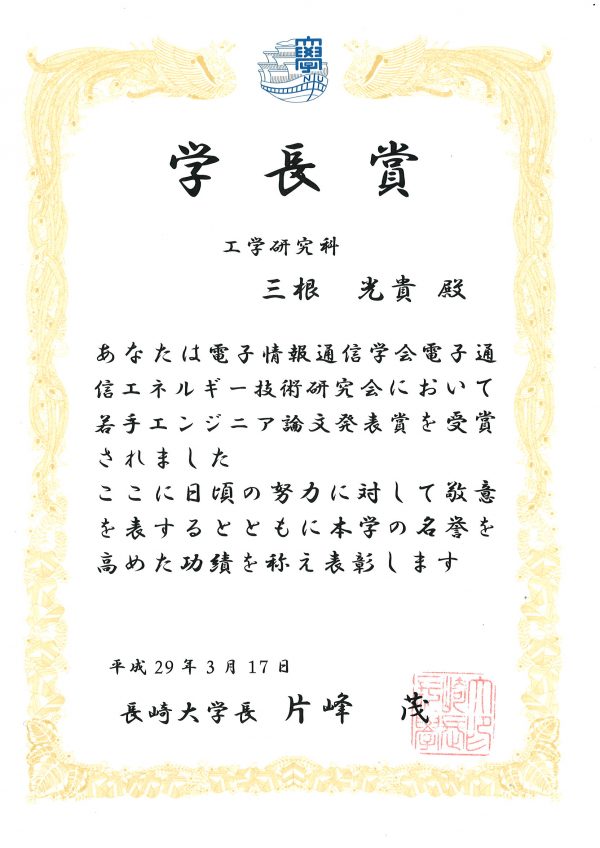 學
NU
学長賞
工学研究科
三根 光貴 殿
あなたは電子情報通信学会電子通
信エネルギー技術研究会において
若手エンジニア論文発表賞を受賞
されました
ここに日頃の努力に対して敬意
を表するとともに本学の名誉を
高めた功績を称え表彰します
平成29年3月17日
長崎大学長 片峰 茂